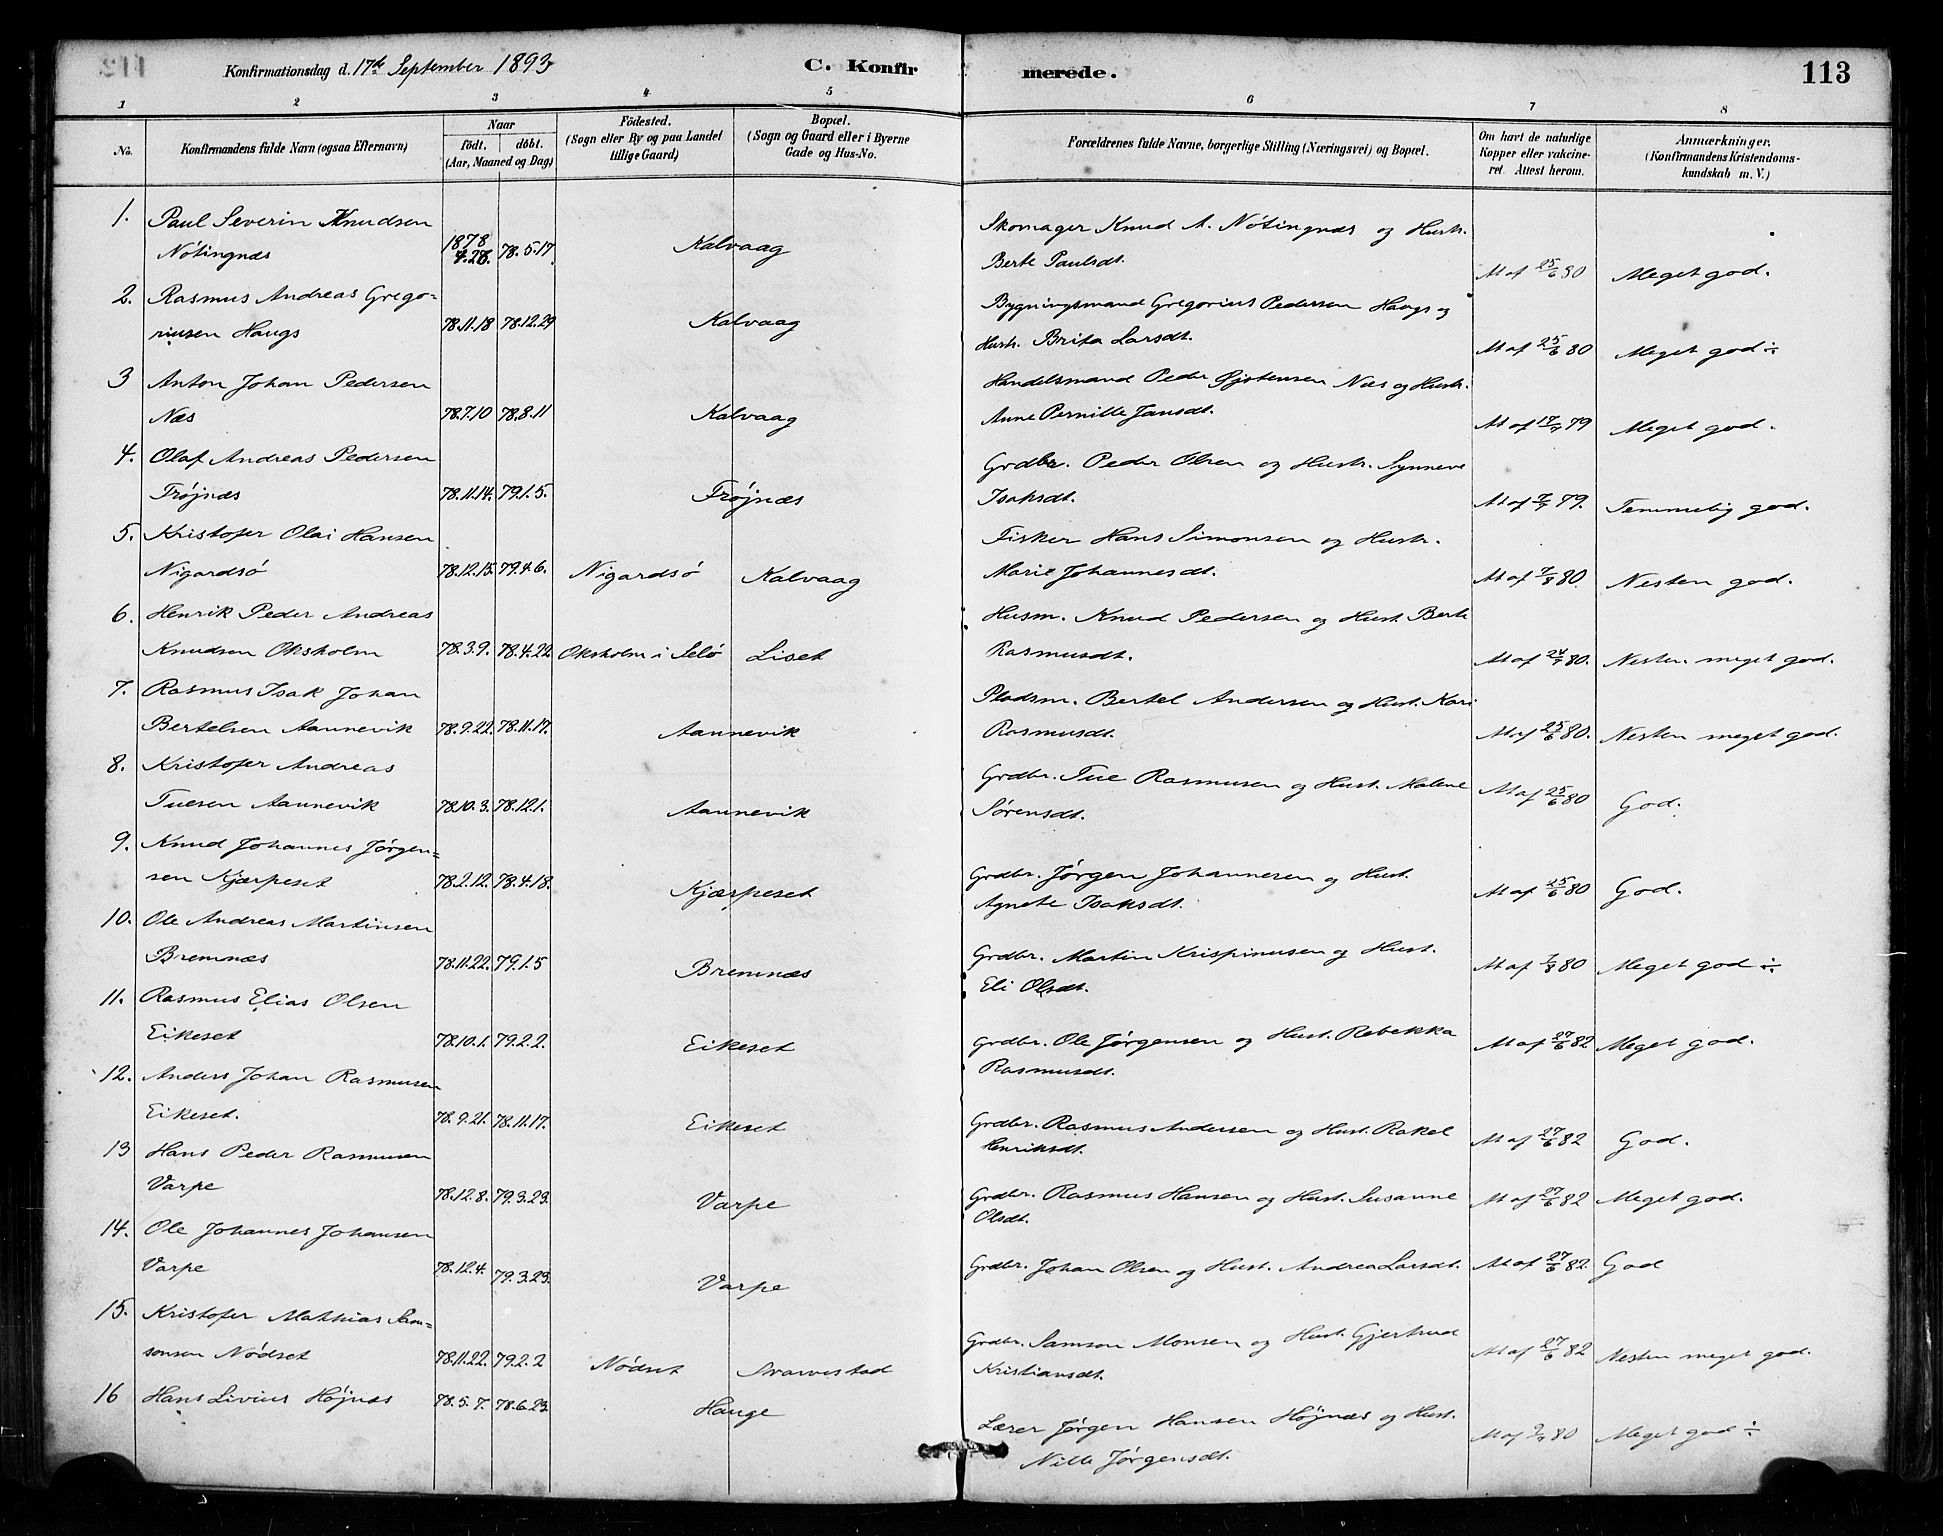 Konfirmationsdag d. 17de September 1893 C. Konfirmerede. 113
1 2 3 4 5 6 7 8
No.
Konfirmandens fulde Navn (ogsaa Efternavn)
Naar
födt. döbt.
(Aar, Maaned og Dag)
Födested.
(Sogn eller By og paa Landet
tillige Gaard)
Bopæl.
(Sogn og Gaard eller i Byerne
Gade og Hus-No.
Forældrenes fulde Navne, borgerlige Stilling (Næringsvei) og Bopæl.
Om havt de naturlige
Kopper eller vakcine-
ret. Attest herom.
Anmærkninger.
(Konfirmandens Kristendoms-
kundskab m. V.)
1. Paul Severin Knudsen Skomager Knud A. Nötingnæs og Hustr.
Nötingnæs 1878 4.28. 78.5.17 Kalvaag Berte Paulsdt. At af 25/6 80 Meget god.
2. Rasmus Andreas Grego- Bygningsmand Gregorius Pedersen Haugs og
riusen Haugs 78.11.18 78.12.29 Kalvaag Hustr. Brita Larsdt. At af 25/6 80 Meget god ÷
3 Anton Johan Pedersen Handelsmand Peder Næs og Hustr.
Næs 78.7.10 78.8.11 Kalvaag Anne Pernille Jansdt. At af 79 Meget god.
4. Olaf Andreas Pedersen Grdbr. Peder Olsen og Hustr. Synneve
Fröjnæs 78.11.14. 79.1.5. Fröjnæs Isaksdt. At af 79. Temmelig god.
5. Kristofer Olai Hansen Fisker Hans Simonsen og Hustr.
Nigardsö 78.12.15. 79.4.6. Nigardsö Kalvaag Marie Johannesdt. At af 7/8 80. Nesten god.
6. Henrik Peder Andreas Husm. Knud Pedersen og Hust. Berte
Knudsen Oksholm 78.3.9. 78.4.22 Oksholm i Selö Liset Rasmusdt. At af 80. Nesten meget god.
7. Rasmus Isak Johan Pladsm. Bertel Andersen og Hust. Kari
Bertelsen Aannevik 78.9.22. 78.11.17. Aannevik Rasmusdt. At af 25/6 80. Nesten meget god.
8. Kristofer Andreas Grdbr. Tue Rasmusen og Hust. Malene
Tuesen Aannevik 78.10.3. 78.12.1. Aannevik Sörensdt. At af 25/6 80 God.
9. Knud Johannes Jörgen- Grdbr. Jörgen Johannesen og Hust.
sen Kjærpeset 78.2.12. 78.4.18. Kjærpeset Agnete Isaksdt. At af 25/6 80 God.
10. Ole Andreas Martinsen Grdbr. Martin Krispinusen og Hust.
Bremnæs 78.11.22. 79.1.5 Bremnæs Eli Olsdt. At af 7/8 80 Meget god ÷
11. Rasmus Elias Olsen Grdbr. Ole Jörgensen og Hust. Rebekka
Eikeset 78.10.1. 79.2.2. Eikeset Rasmusdt. At af 27/6 82 Meget god.
12. Anders Johan Rasmusen Grdbr. Rasmus Andersen og Hust. Rakel
Eikeset. 78.9.21. 78.11.17. Eikeset Henriksdt. At af 27/6 82 God.
13 Hans Peder Rasmusen Grdbr. Rasmus Hansen og Hust. Susanne
Varpe 78.12.8. 79.3.23. Varpe Olsdt. At af 27/6 82 Meget god.
14. Ole Johannes Johansen Grdbr. Johan Olsen og Hust. Andrea Larsdt. At af 27/6 82. God
Varpe 78.12.4. 79.3.23. Varpe
15. Kristofer Mathias Sam- Grdbr. Samson Monsen og Hust. Gjertrud
sonsen Nödset 78.11.22. 79.2.2 Nödset Svarvestad Kristiansdt. At af 27/6 82 Nesten meget god.
16 Hans Livius Höjnæs 78.5.7. 78.6.23. Hauge Lærer Jörgen Hansen Höjnæs og Hust.
Nille Jörgensdt. At af 80 Meget god ÷